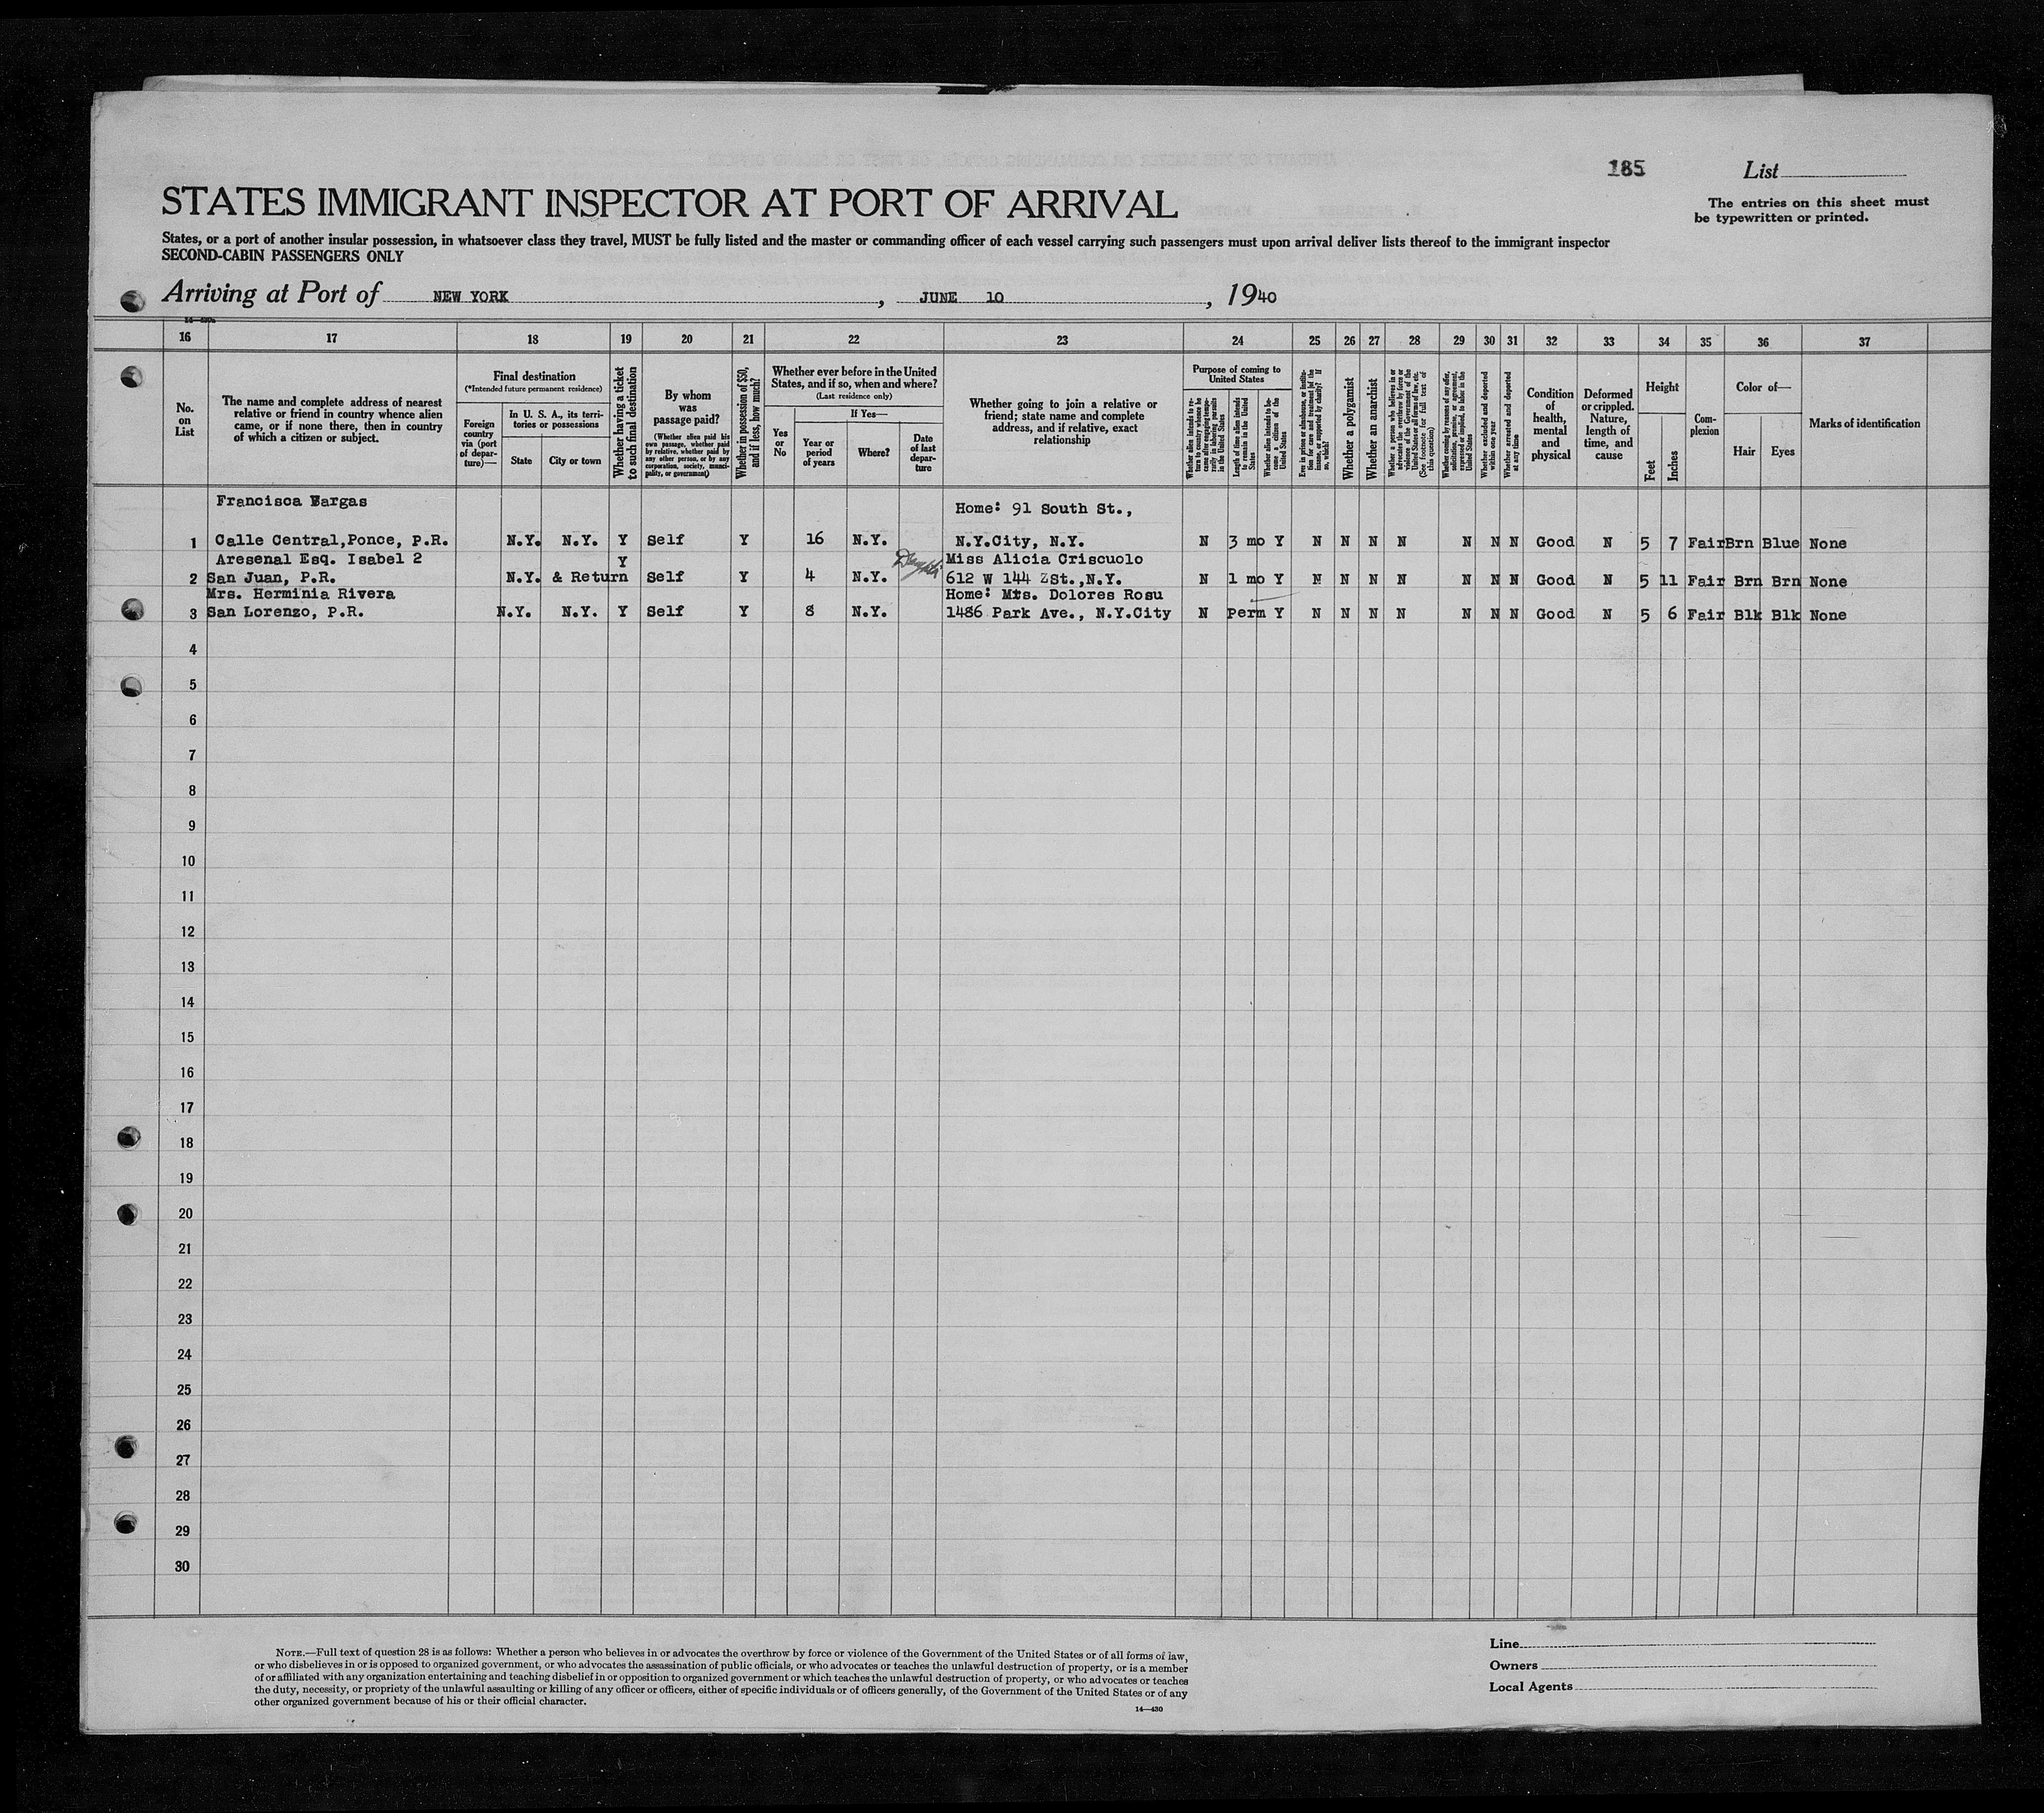 185
List
STATES IMMIGRANT INSPECTOR AT PORT OF ARRIVAL
The entries on this sheet must
be typewritten or printed.
States, or a port of another insular possession, in whatsoever class they travel, MUST be fully listed and the master or commanding officer of each vessel carrying such passengers must upon arrival deliver lists thereof to the immigrant inspector
SECOND-CABIN PASSENGERS ONLY
Arriving at Port of NEW YORK, JUNE 10, 1940
16 17 18 19 20 21 22 23 24 25 26 27 28 29 30 31 32 33 34 35 36 37
No.
on
List
The name and complete address of nearest
relative or friend in country whence alien
came, or if none there, then in country
of which a citizen or subject.
Final destination
(*Intended future permanent residence)
Foreign
country
via (port
of depar-
ture)—
In U. S. A., its terri-
tories or possessions
State
City or town
Whether having a ticket
to such final destination
By whom
was
passage paid?
(Whether alien paid his
own passage, whether paid
by relative, whether paid by
any other person, or by any
corporation, society, munici-
pality, or government)
Whether in possession of $50,
and if less, how much?
Whether ever before in the United
States, and if so, when and where?
(Last residence only)
Yes
or
No
If Yes—
Year or
period
of years
Where?
Date
of last
depar-
ture
Whether going to join a relative or
friend; state name and complete
address, and if relative, exact
relationship
Purpose of coming to
United States
Whether alien intends to re-
turn to country whence he
came after engaging tempo-
rarily in laboring pursuits
in the United States
Length of time alien intends
to remain in the United
States
Whether alien intends to be-
come a citizen of the
United States
Ever in prison or almshouse, or institu-
tion for care and treatment of the
insane, or supported by charity? If
so, which?
Whether a polygamist
Whether an anarchist
Whether a person who believes in or
advocates the overthrow by force or
violence of the Government of the
United States or all forms of law, etc.
(See footnote for full text of
this question)
Whether coming by reason of any offer,
solicitation, promise, or agreement,
expressed or implied, to labor in the
United States
Whether excluded and deported
within one year
Whether arrested and deported
at any time
Condition
of
health,
mental
and
physical
Deformed
or crippled.
Nature,
length of
time, and
cause
Height
Feet
Inches
Com-
plexion
Color of—
Hair
Eyes
Marks of identification
Francisca Vargas
Home: 91 South St.,
1 Calle Central,Ponce, P.R. N.Y. N.Y. Y Self Y 16 N.Y. N.Y.City, N.Y. N 3 mo Y N N N N N N N Good N 5 7 Fair Brn Blue None
Aresenal Esq. Isabel 2 Y Miss Alicia Criscuolo
2 San Juan, P.R. N.Y. & Return Self Y 4 N.Y. 612 W 144 St.,N.Y. N 1 mo Y N N N N N N N Good N 5 11 Fair Brn Brn None
Mrs. Herminia Rivera Home: Mrs. Dolores Rosu
3 San Lorenzo, P.R. N.Y. N.Y. Y Self Y 8 N.Y. 1486 Park Ave., N.Y.City N Perm Y N N N N N N N Good N 5 6 Fair Blk Blk None
4
5
6
7
8
9
10
11
12
13
14
15
16
17
18
19
20
21
22
23
24
25
26
27
28
29
30
NOTE.—Full text of question 28 is as follows: Whether a person who believes in or advocates the overthrow by force or violence of the Government of the United States or of all forms of law,
or who disbelieves in or is opposed to organized government, or who advocates the assassination of public officials, or who advocates or teaches the unlawful destruction of property, or is a member
of or affiliated with any organization entertaining and teaching disbelief in or opposition to organized government or which teaches the unlawful destruction of property, or who advocates or teaches
the duty, necessity, or propriety of the unlawful assaulting or killing of any officer or officers, either of specific individuals or of officers generally, of the Government of the United States or of any
other organized government because of his or their official character.
14—430
Line
Owners
Local Agents